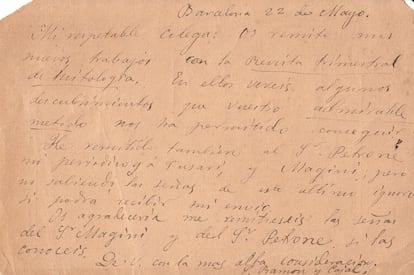 Barcelona 22 de Mayo.
Mi respetable colega: Os remito mis
nuevos trabajos con la Revista trimestral
de Histología. En ellos vereis algunos
descubrimientos que vuestro admirable
metodo nos ha permitido conseguir
He remitido también al Sr. Petrone
mi periodico y á Fusari, y Magini, pero
no sabiendo las señas de este ultimo ignoro
si podrá recibir mi envio.
Os agradeceria me remitieseis las señas
del Sr. Magini y del Sr. Petrone si las
conoceis.
De V. con la mas alta consideración.
S. Ramon y Cajal